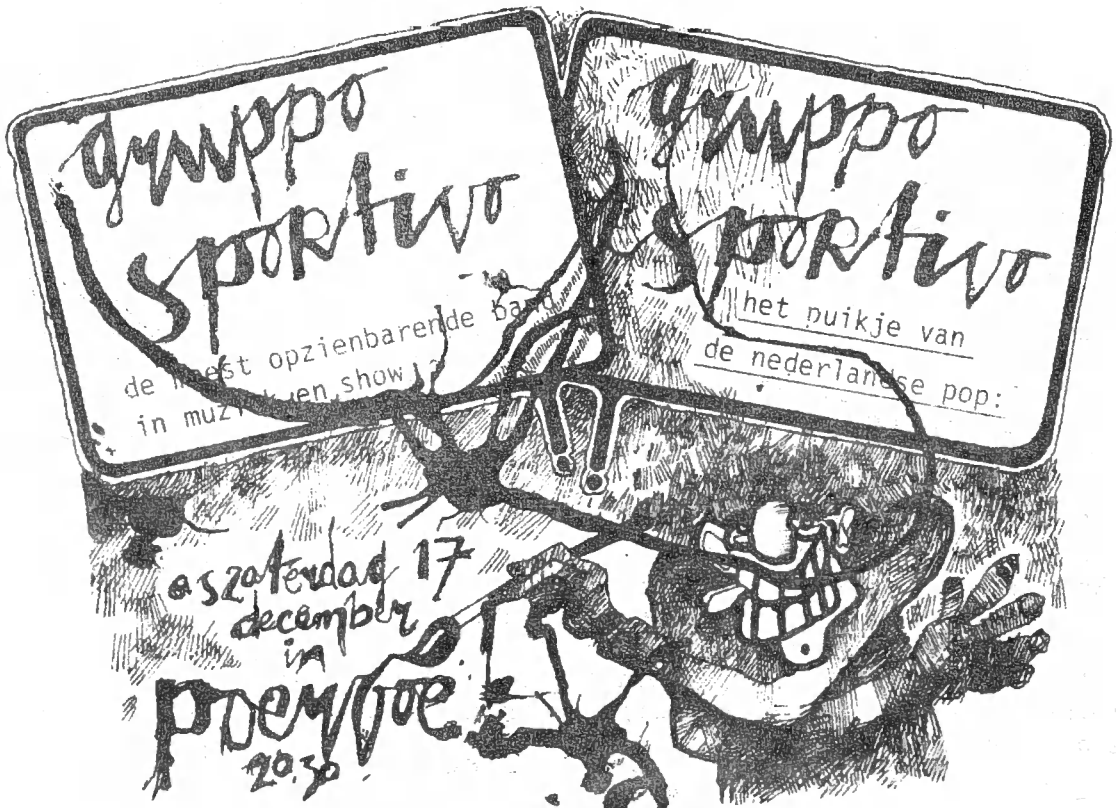 gruppo
sportivo
de meest opzienbarende band
in muziek en show!
gruppo
sportivo
het puikje van
de nederlandse pop:
a s zaterdag 17
december
in
20.30